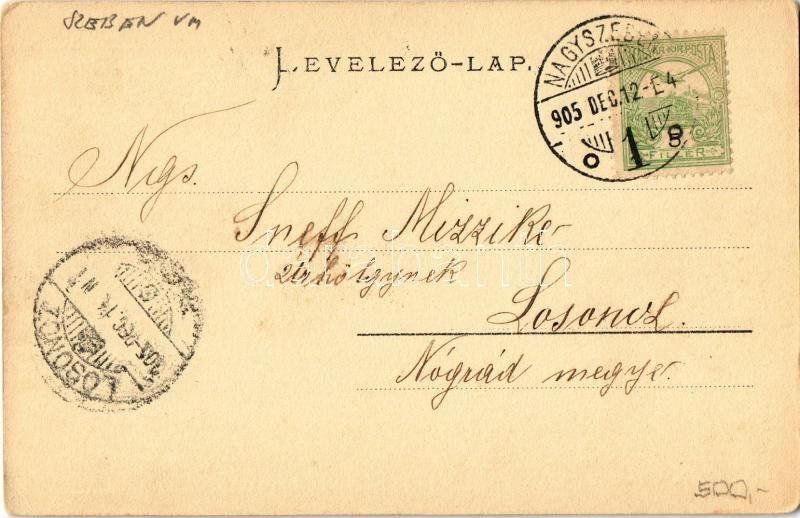 SZEBEN VM
LEVELEZŐ-LAP.
NAGYSZEBEN
905 DEC. 12-E 4
MAGY. KIR. POSTA
FILLÉR
Ngs.
Sneff Mizzike
úrhölgynek
Losoncz.
Nógrád megye.
LOSONCZ
905 DEC. 14
500,-